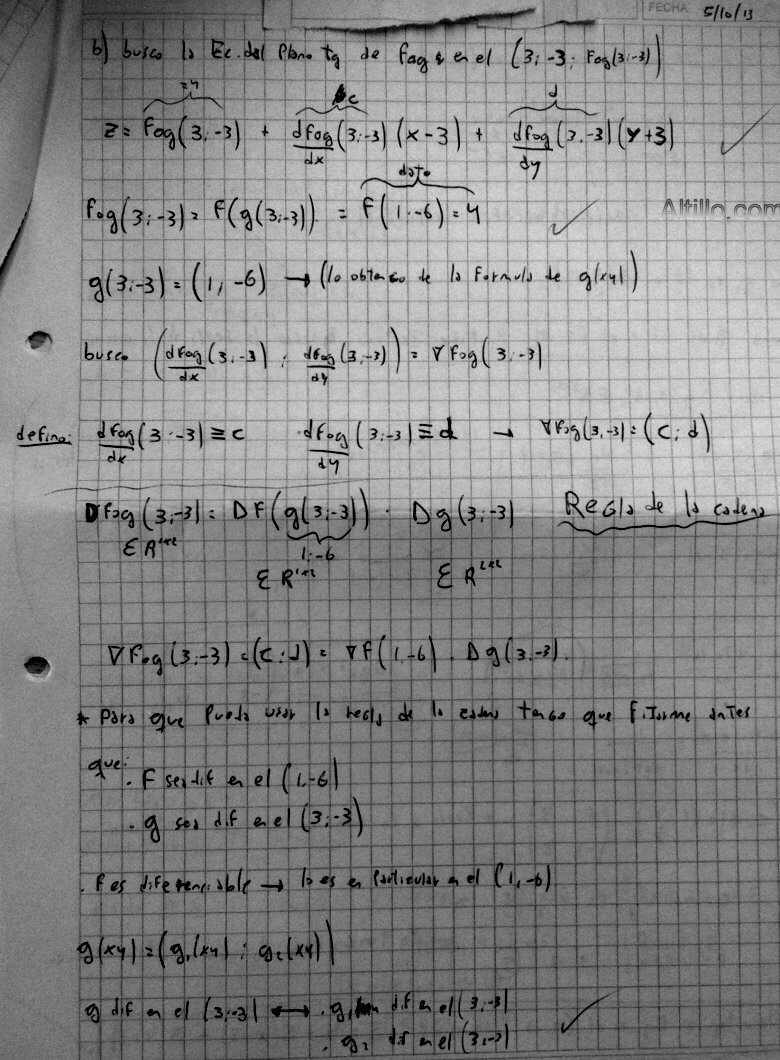 FECHA 5/10/13
b) busco la Ec. del Plano tg de Fog en el (3;-3; Fog(3;-3))
=4 c d
z = Fog(3;-3) + dFog/dx (3;-3) (x-3) + dFog/dy (3,-3) (y+3)
dato
Fog(3;-3) = F(g(3;-3)) = F(1;-6) = 4
Altillo.com
g(3;-3) = (1; -6) → (lo obtengo de la Formula de g(xy))
busco (dFog/dx (3,-3) ; dFog/dy (3,-3)) = ∇Fog(3;-3)
defino: dFog/dx (3;-3) ≡ c dFog/dy (3;-3) ≡ d → ∇Fog(3,-3) = (c; d)
DFog(3;-3) = DF(g(3;-3)) · Dg(3;-3) Regla de la cadena
1;-6
∈ R¹ˣ² ∈ R¹ˣ² ∈ R²ˣ²
∇Fog(3;-3) = (c;d) = ∇F(1,-6) . Dg(3,-3).
* Para que Pueda usar la regla de la cadena tengo que Fijarme antes
que:
. F sea dif en el (1,-6)
. g sea dif en el (3;-3)
. F es diferenciable → lo es en Particular en el (1,-6)
g(xy) = (g₁(xy) ; g₂(xy))
g dif en el (3;-3) ↔ . g₁ dif en el (3,-3)
. g₂ dif en el (3;-3)